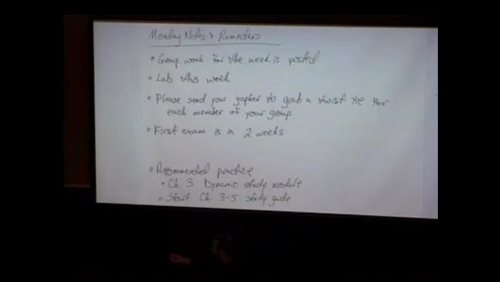 Monday Notes & Reminders
• Group work for the week is posted
• Lab this week
• Please send your gopher to grab a twist tie for
each member of your group
• First exam is in 2 weeks
• Recommended practice
• Ch. 3 Dynamic study module
• Start Ch. 3-5 study guide